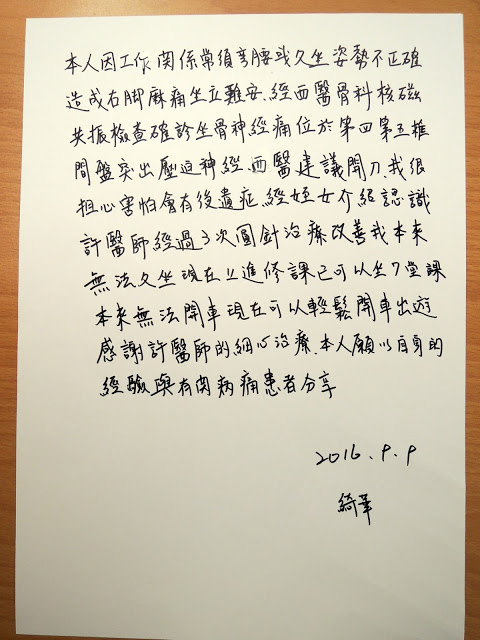 本人因工作關係常須彎腰或久坐姿勢不正確
造成右脚麻痛坐立難安、經西醫骨科核磁
共振檢查確診坐骨神經痛位於第四第五椎
間盤突出壓迫神經、西醫建議開刀、我很
担心害怕會有後遺症、經姪女介紹認識
許醫師經過3次圓針治療改善我本來
無法久坐現在上進修課已可以坐7堂課
本來無法開車現在可以輕鬆開車出遊
感謝許醫師的細心治療、本人願以自身的
經驗與有関病痛患者分享
2016.9.9
綺華